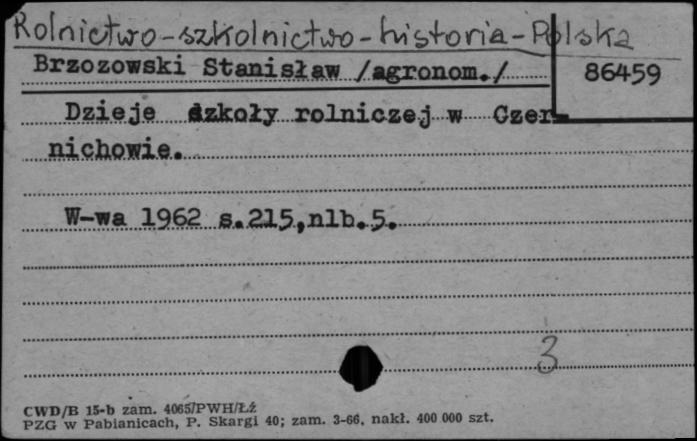 Rolnictwo-szkolnictwo-historia-Polska
Brzozowski Stanisław /agronom./
86459
Dzieje szkoły rolniczej w Czer-
nichowie.
W-wa 1962 s.215,nlb.5.
3
CWD/B 15-b zam. 4065/PWH/Łż
PZG w Pabianicach, P. Skargi 40; zam. 3-66, nakł. 400 000 szt.